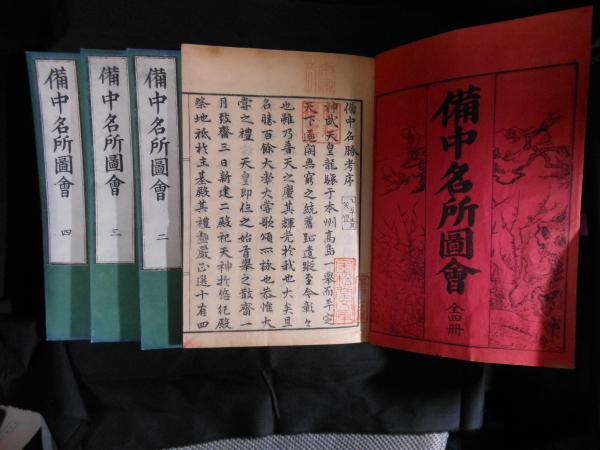 備中名所圖會
全四冊
備中名勝考序
神武天皇龍驤于本州高島一舉而平定
天下遂開無窮之統舊趾遺蹤至今彰々
也雖乃普天之慶其輝光於我也大矣且
名勝百餘大率大嘗歌頌所詠也恭惟大
嘗之禮天皇即位之始首舉之散齋一
月致齋三日新建二殿祀天神於悠紀殿
祭地祇於主基殿其禮趣嚴正選十有四
備中名所圖會
二
備中名所圖會
三
備中名所圖會
四